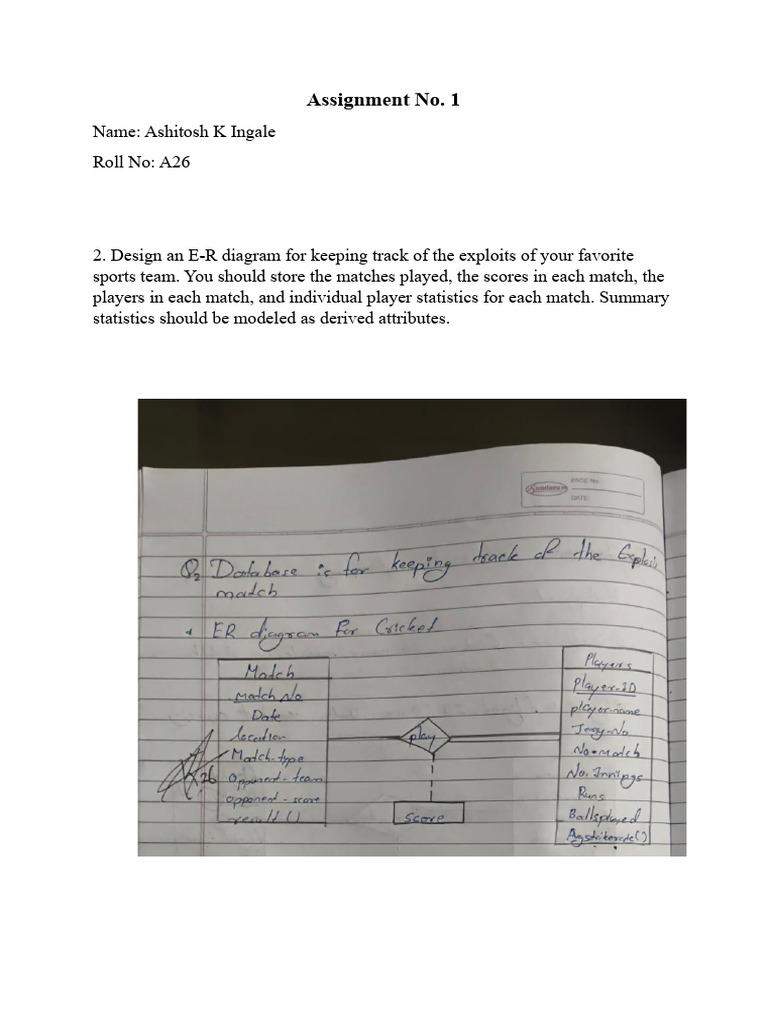 Assignment No. 1
Name: Ashitosh K Ingale
Roll No: A26
2. Design an E-R diagram for keeping track of the exploits of your favorite
sports team. You should store the matches played, the scores in each match, the
players in each match, and individual player statistics for each match. Summary
statistics should be modeled as derived attributes.
Sundaram
PAGE No.
DATE:
Q2 Database is for keeping track of the Exploits
match
ER diagram For Cricket
Match
Match No
Date
location
Match-type
Opponent-team
opponent-score
result()
26
play
score
Players
Player-ID
player-name
Jersy-No
No-match
No. Innings
Runs
Ballsplayed
Avgstrikerate()